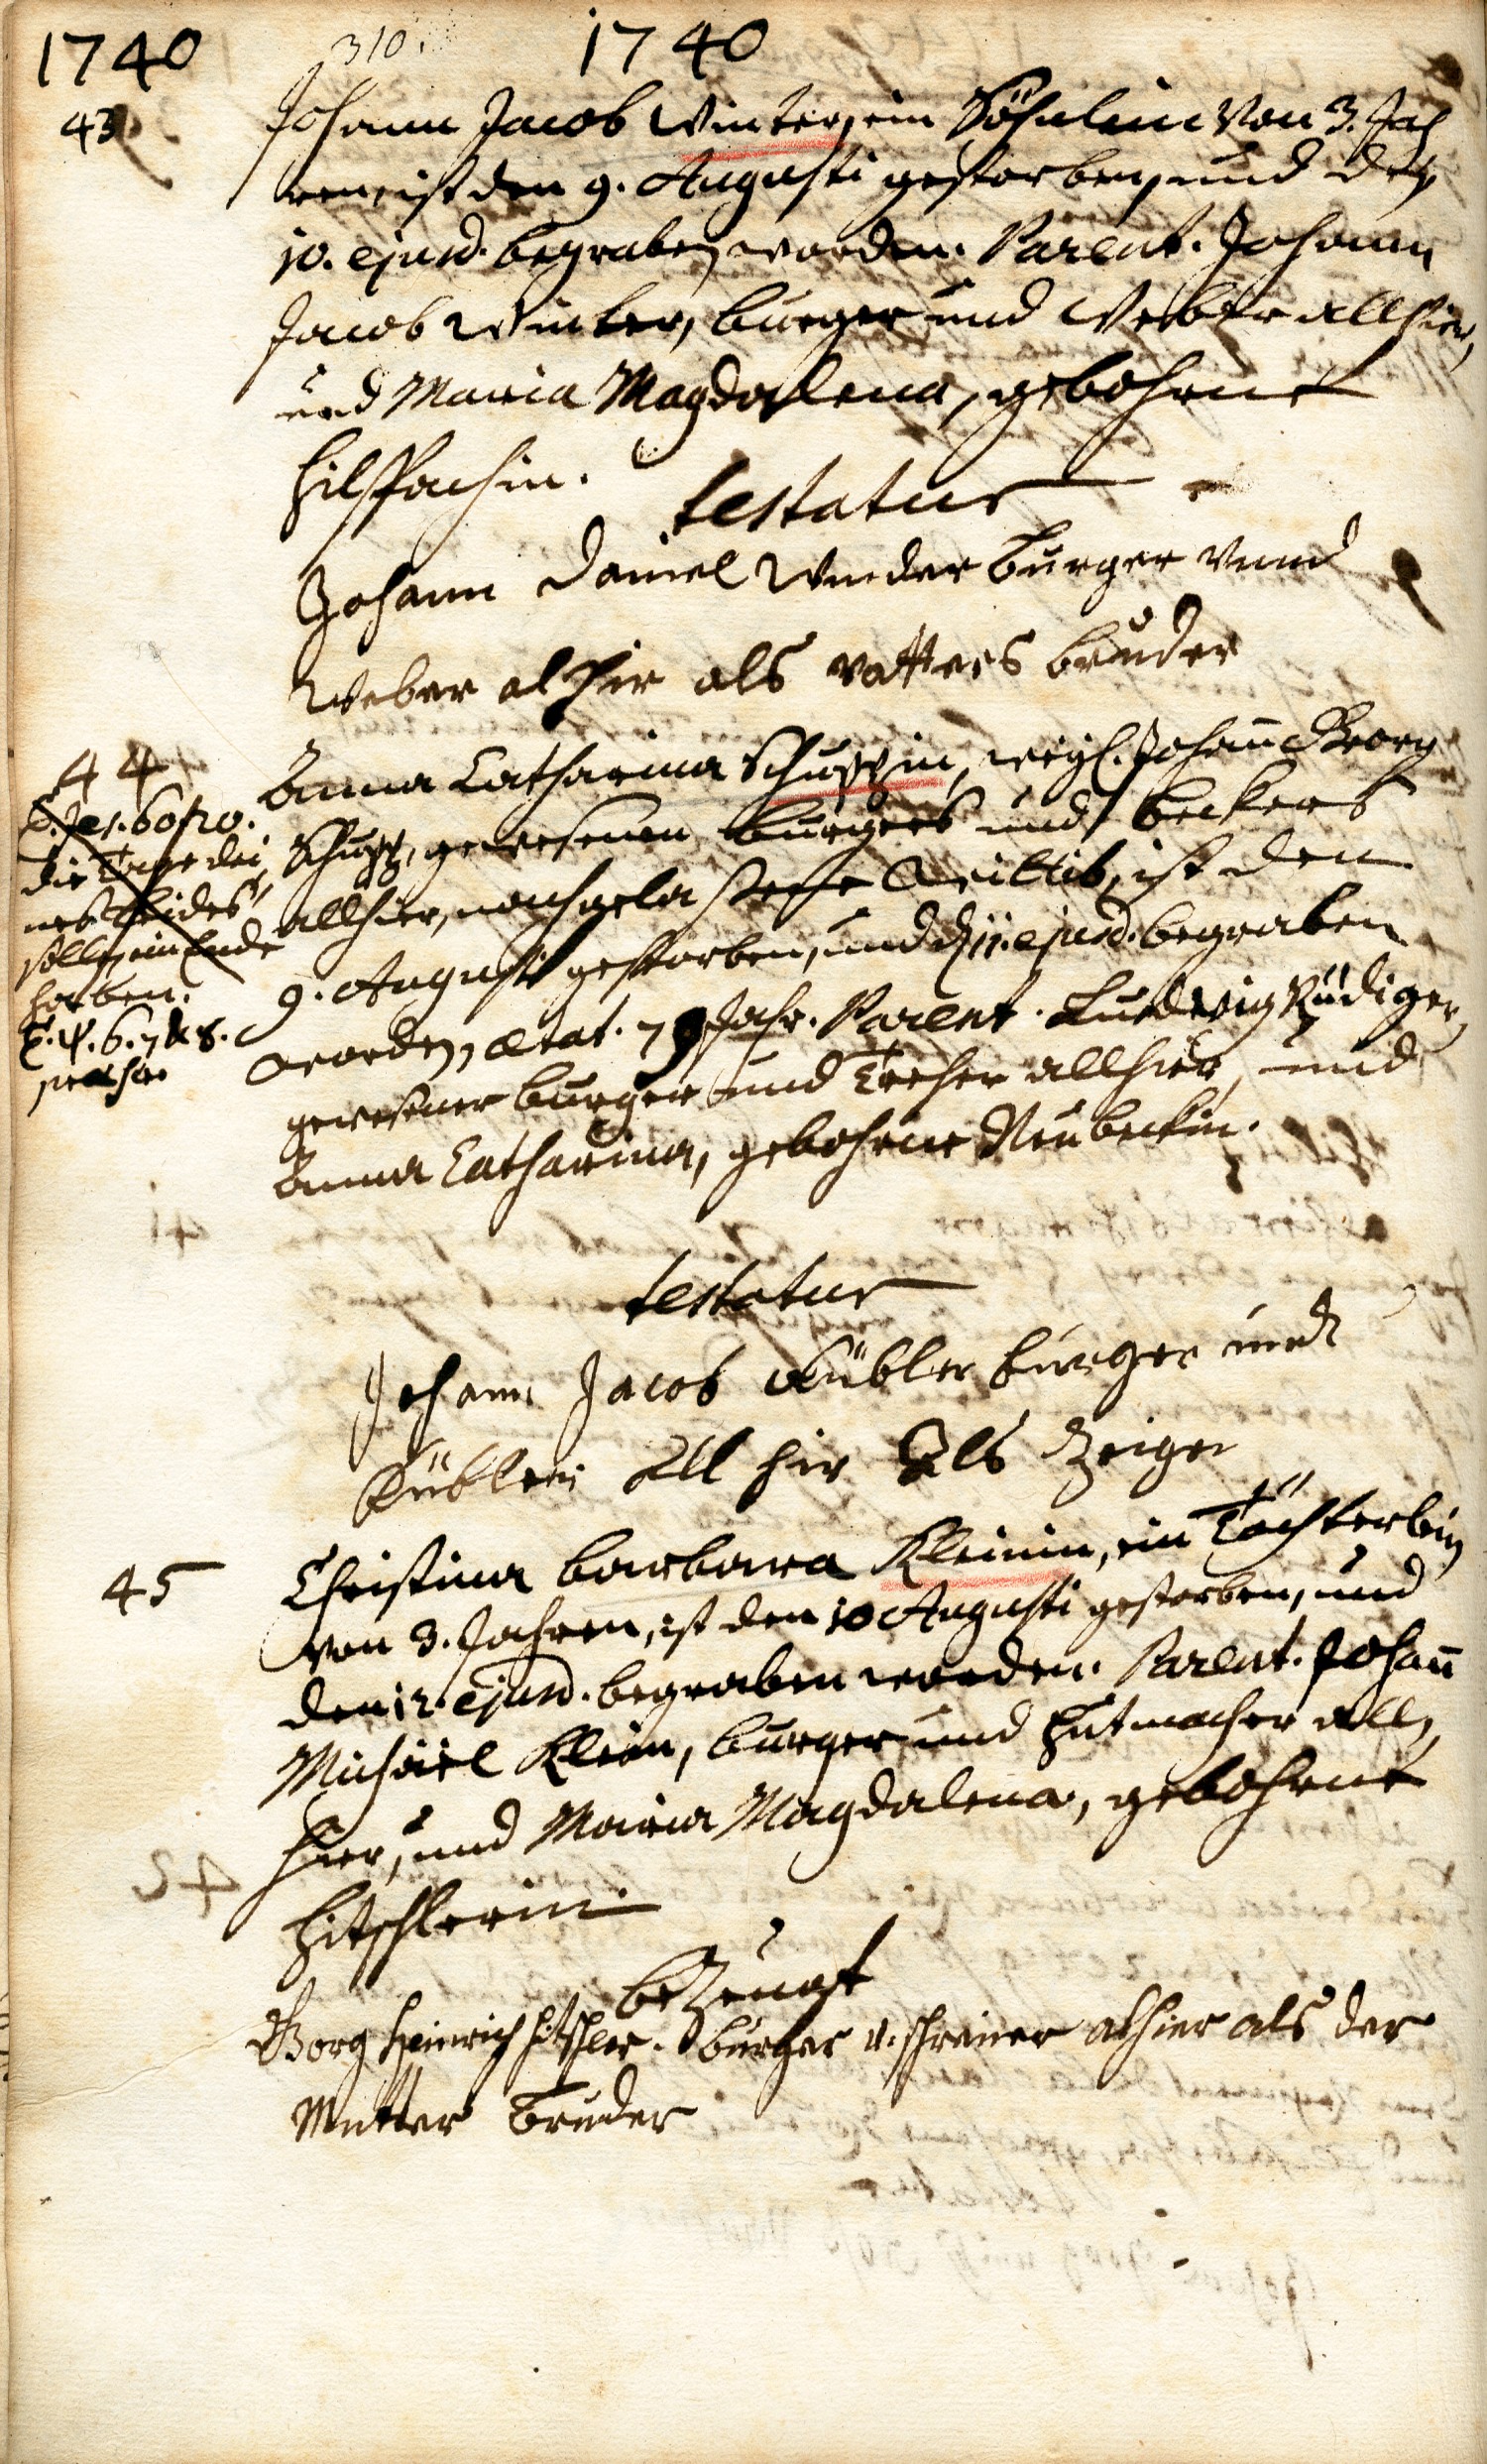 1740 310. 1740
43. Johann Jacob Winter, ein Söhnlein von 3. Jah
ren, ist den 9. Augusti gestorben, und den
10. ejusd. begraben worden. Parent. Johann
Jacob Winter, burger und Weber allhier,
und Maria Magdalena, gebohrne
Hilspachin.
testatur
Johann Daniel Winder burger vnnd
Weber al hir als vatters bruder
44 Anna Catharina Schuppin, weyl. Johañ Georg
Schupp, gewesenen burgers und beckers
allhier, nachgelassene Wittib, ist den
9. Augusti gestorben, und d. 11. ejusd. begraben
worden, ætat. 79 Jahr. Parent. Ludwig Rüdiger,
gewesener burger und allhier, und
Anna Catharina, gebohrne Neubeckin.
Jes. 60. 20.
die Tage dei
nes Leides
sollen ein Ende
haben.
T. ψ. 6. 7 & 8.
testatur
Johann Jacob Kübler burger und
Kübler all hir Als Zeige
45 Christina barbara Kleinin, ein Töchterlein
von 3. Jahren, ist den 10 Augusti gestorben, und
den 12. ejusd. begraben worden. Parent. Johañ
Michäel Klein, burger und Hutmacher all,
hier, und Maria Magdalena, gebohrne
Hitschlerin.
beZeugt
Georg Heinrich Hitschler. burger u. schreiner alhier als der
Mutter Bruder